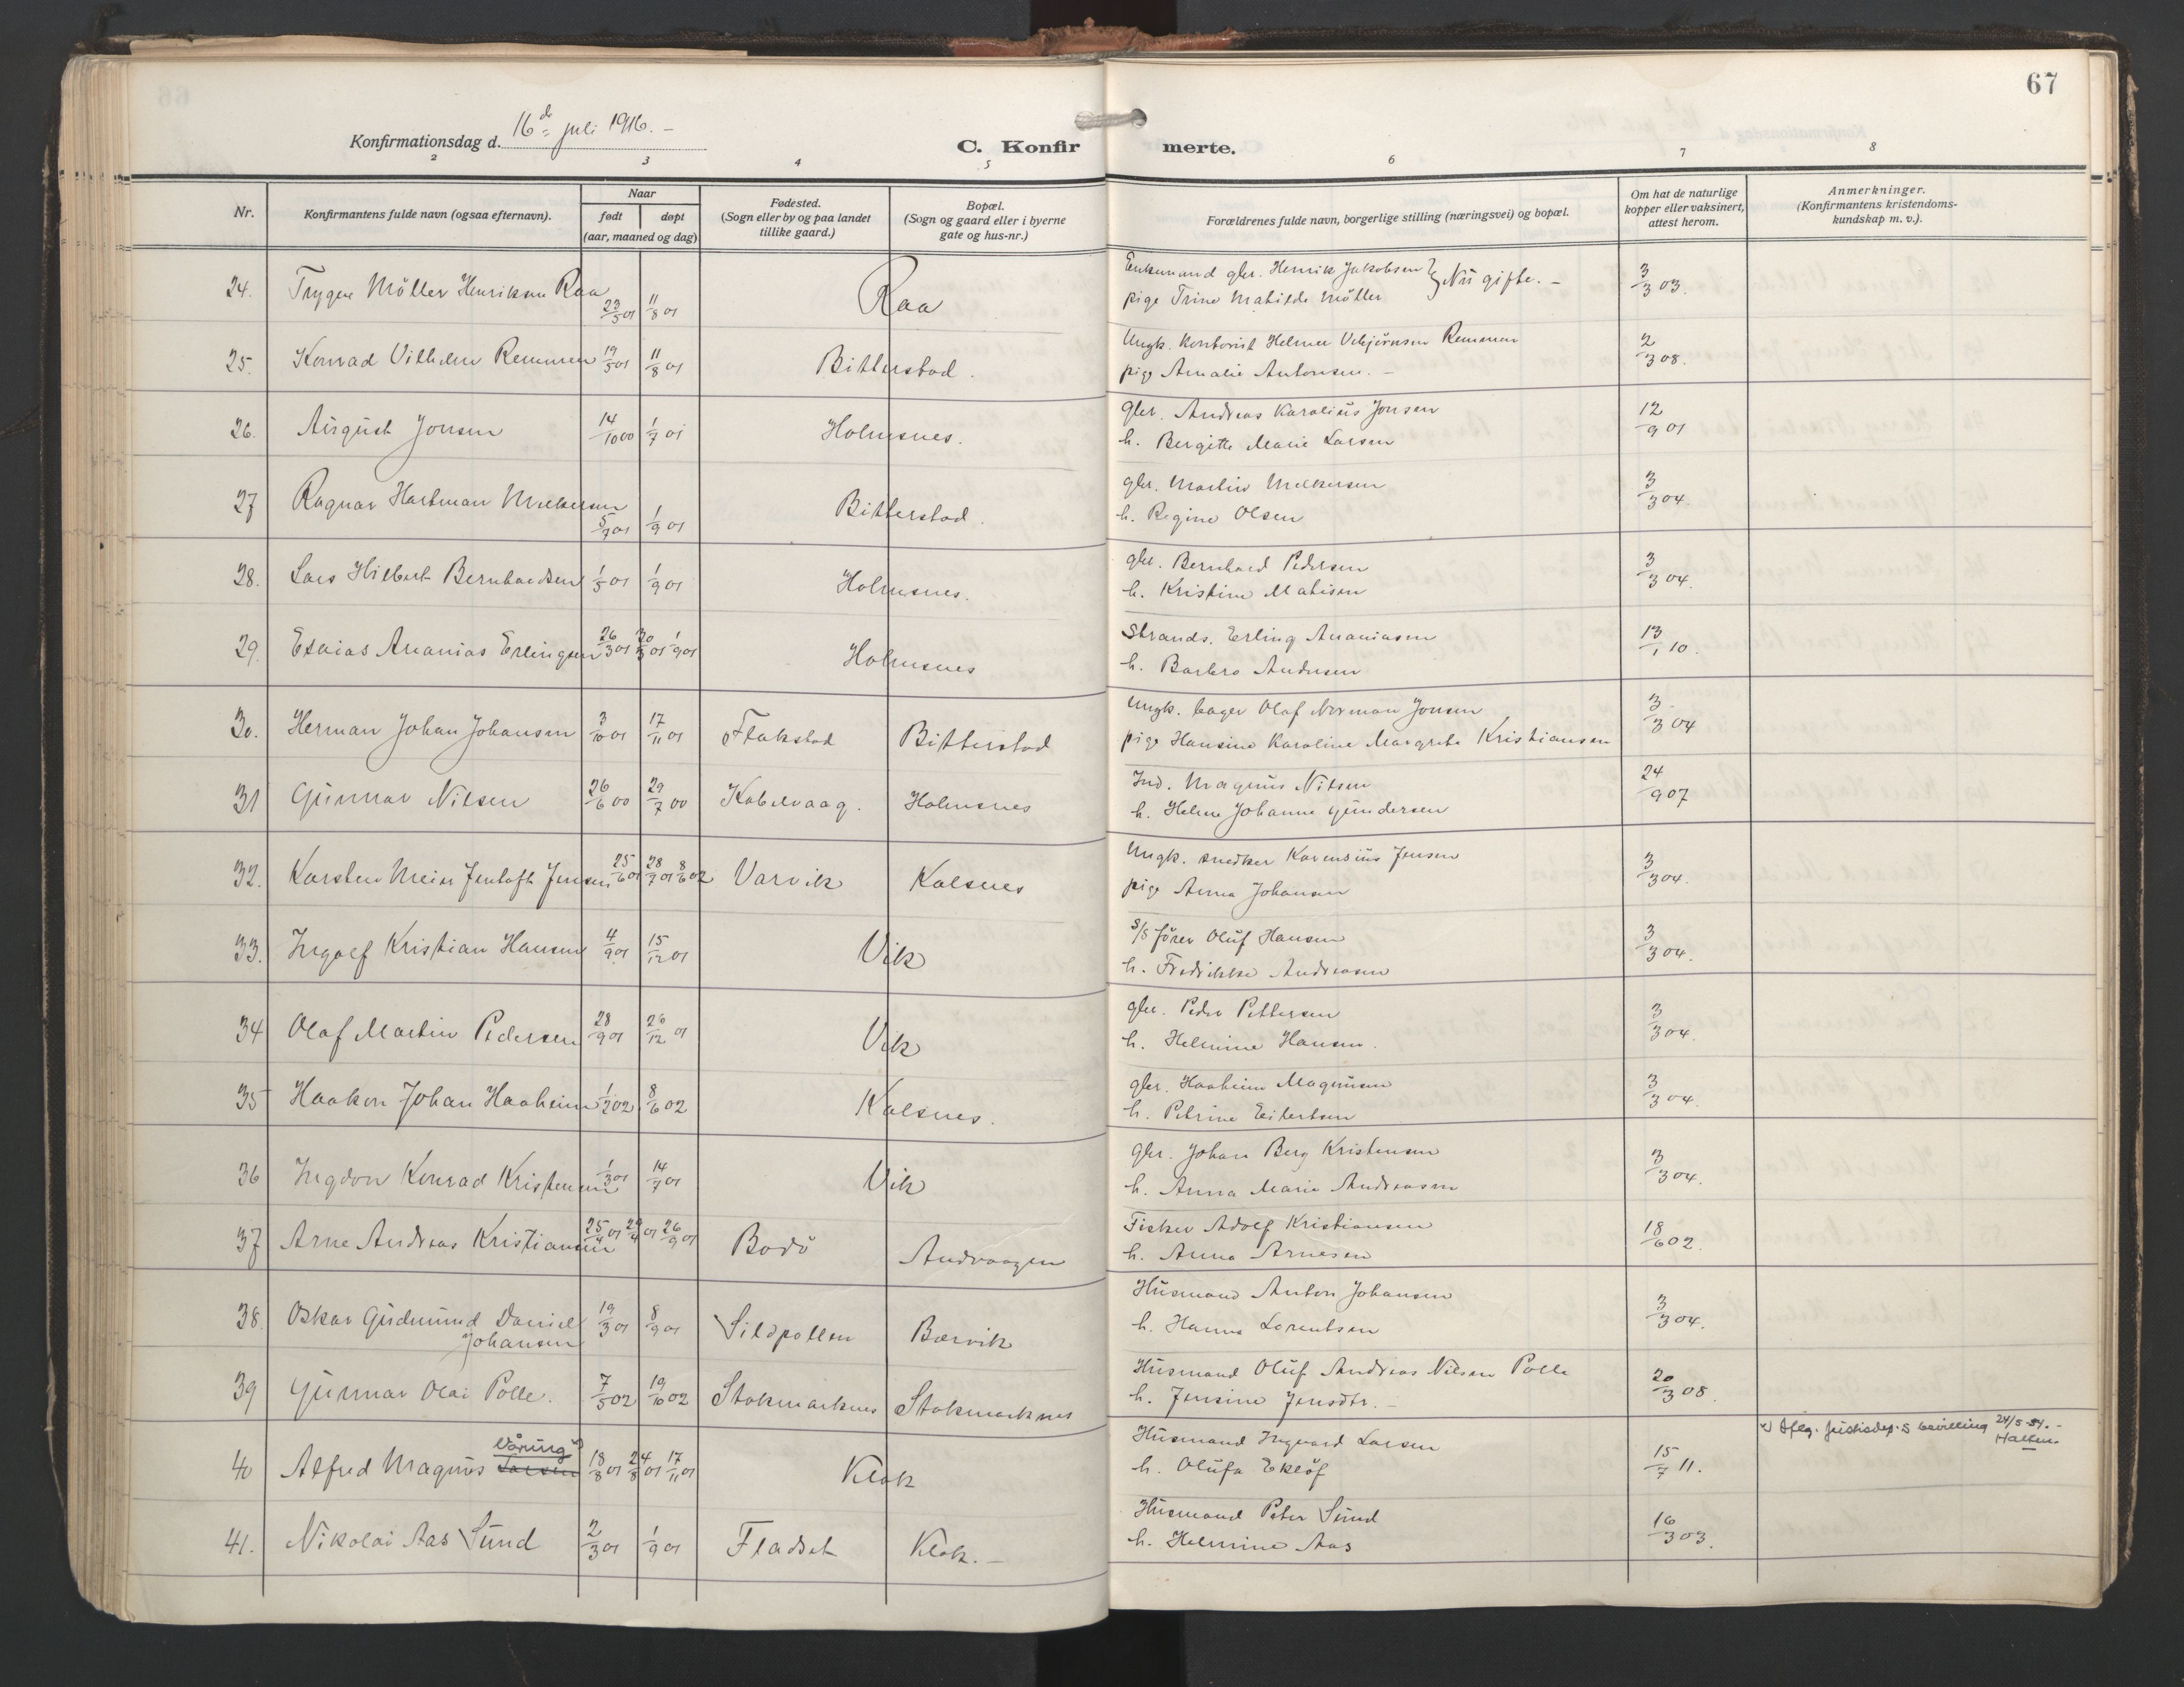 67
Konfirmationsdag d. 16de juli 1916. –
C. Konfirmerte.
2 3 4 5 6 7 8
Nr.
Konfirmantens fulde navn (ogsaa efternavn).
Naar
født døpt
(aar, maaned og dag)
Fødested.
(Sogn eller by og paa landet
tillike gaard.)
Bopæl.
(Sogn og gaard eller i byerne
gate og hus-nr.)
Forældrenes fulde navn, borgerlige stilling (næringsvei) og bopæl.
Om hat de naturlige
kopper eller vaksinert,
attest herom.
Anmerkninger.
(Konfirmantens kristendoms-
kundskap m. v.).
24. Trygve Möller Henriksen Raa 23/5 01 11/8 01 Raa Enkemand gbr. Henrik Jakobsen } Nu gifte. – 3/3 03.
pige Trine Matilde Möller
25. Konrad Vilhelm Remmen 19/5 01 11/8 01 Bitterstad. Ungk. kontorist Helmer Vebjörnsen Remmen 2/3 08.
pige Amalie Antonsen. –
26. August Jonsen 14/10 00 1/7 01 Holmsnes. gbr. Andreas Karolius Jonsen 12/9 01
h. Bergitte Marie Larsen
27 Ragnar Hartman Melkersen 5/7 01 1/9 01 Bitterstad. gbr. Martin Melkersen 3/3 04.
h. Regine Olsen
28. Lars Hilbert Bernhardsen 1/5 01 1/9 01 Holmsnes. gbr. Bernhard Pedersen 3/3 04.
h. Kristine Matisen
29. Esaias Ananias Erlingsen 26/3 01 30/3 01 1/9 01 Holmsnes Strands. Erling Ananiasen 13/1 10.
h. Barbro Andersen
30. Herman Johan Johansen 3/10 01 17/11 01 Flakstad Bitterstad Ungk. bager Olaf Norman Jonsen 3/3 04
pige Hansine Karoline Margrete Kristiansen
31 Gunnar Nilsen 26/6 00 29/7 00 Kabelvaag. Holmsnes Ind. Magnus Nilsen 24/9 07
h. Helene Johanne Gundersen
32. Karsten Meier Jentoft Jensen 25/6 01 28/7 01 8/6 02 Varvik Kalsnes Ungk. snedker Karensius Jensen 3/3 04.
pige Anna Johansen
33. Ingolf Kristian Hansen 4/9 01 15/12 01 Vik s/s förer Oluf Hansen 3/3 04.
h. Fredrikke Andreasen
34 Olaf Martin Pedersen 28/9 01 26/12 01 Vik gbr. Peder Pettersen 3/3 04.
h. Helmine Hansen.
35 Haakon Johan Haaheim 1/2 02 8/6 02 Kalsnes. gbr. Haaheim Magnusen 3/3 04.
h. Petrine Eilertsen
36 Ingdor Konrad Kristensen 1/3 01 14/7 01 Vik gbr. Johan Berg Kristensen 3/3 04.
h. Anna Marie Andreasen
37 Arne Andreas Kristiansen 25/4 01 29/4 01 26/9 01 Bodö Andvaagen Fisker Adolf Kristiansen 18/6 02.
h. Anna Arnesen
38. Oskar Gudmund Daniel 19/3 01 8/9 01 Sildpollen Børvik Husmand Anton Johansen 3/3 04.
Johansen h. Hanna Lorentsen
39 Gunnar Olai Polle. 7/5 02 19/10 02 Stokmarknes Stokmarknes Husmand Oluf Andreas Nilsen Polle 20/3 08.
h. Jensine Jensdtr. –
40 Alfred Magnus Larsen Våring x) 18/8 01 24/8 01 17/11 01 Klok Husmand Ingvard Larsen 15/7 11. x) Iflg. justisdep.s bevilling 24/5-34. –
h. Olufa Eklöf
41. Nikolai Aas Sund 2/3 01 1/9 01 Fladset Klok. – Husmand Peter Sund 16/3 03.
h. Helmine Aas